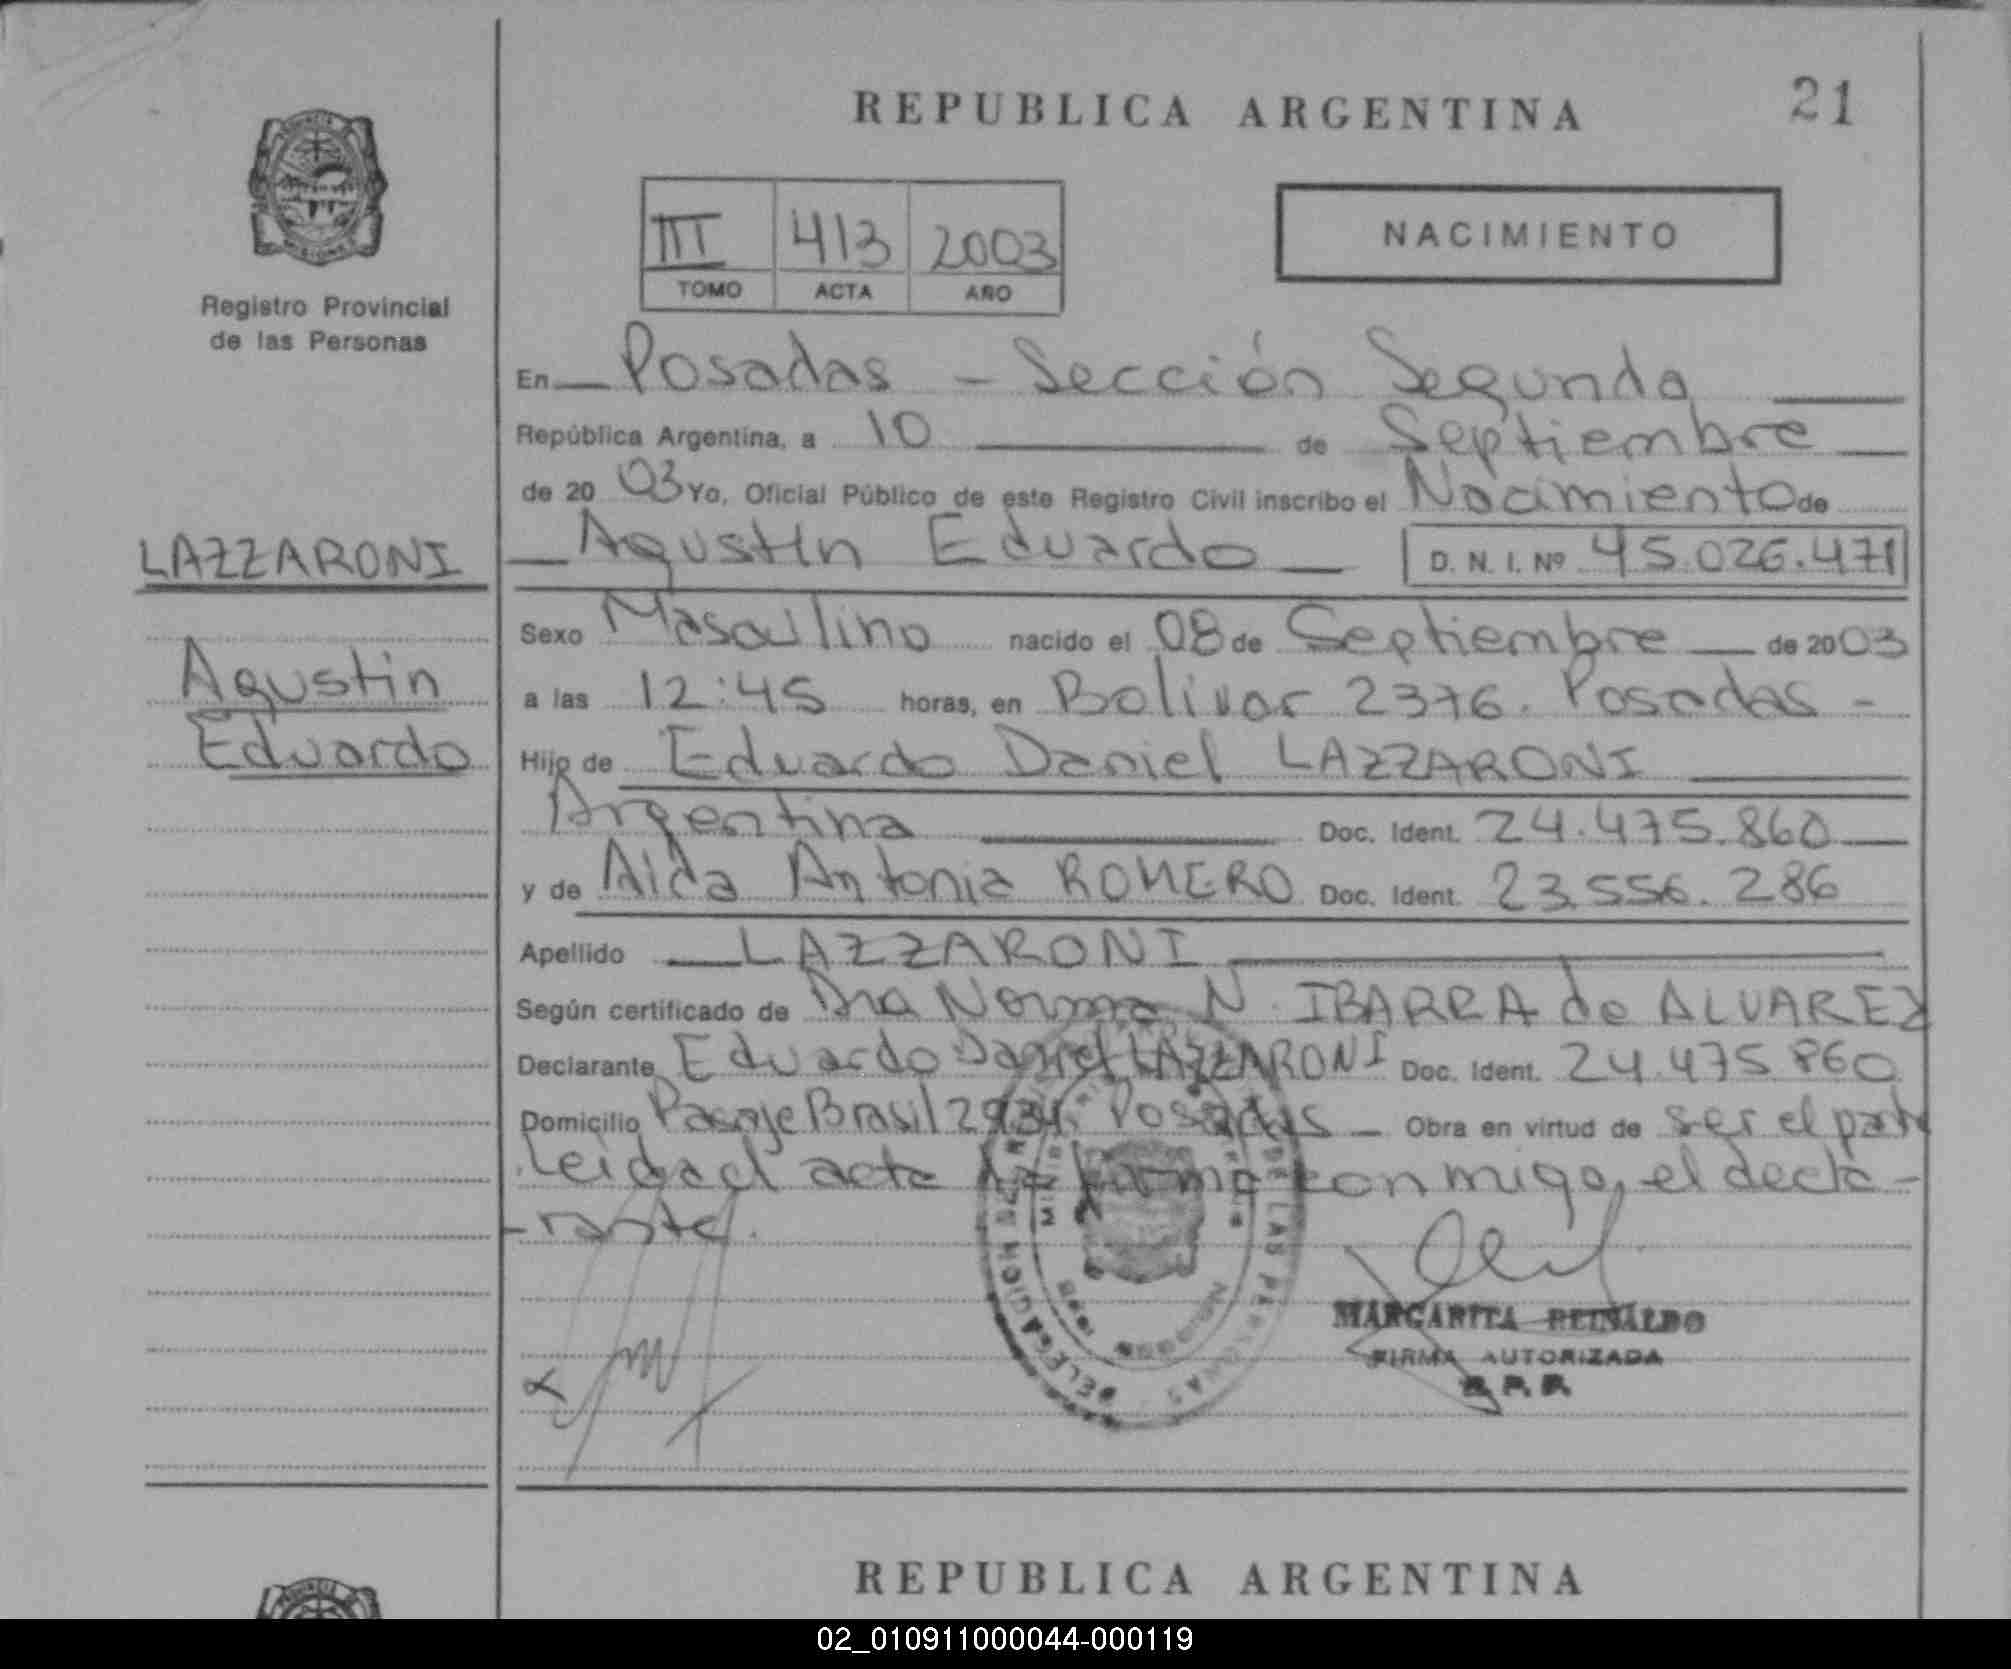 REPUBLICA ARGENTINA
21
III 413 2003
TOMO ACTA AÑO
NACIMIENTO
Registro Provincial
de las Personas
En Posadas - Sección Segunda
República Argentina, a 10 de Septiembre
de 2003 Yo, Oficial Público de este Registro Civil inscribo el Nacimiento de
Agustin Eduardo D. N. I. Nº 45.026.471
LAZZARONI
Agustin
Eduardo
Sexo Masculino nacido el 08 de Septiembre de 2003
a las 12:45 horas, en Bolivar 2376. Posadas -
Hijo de Eduardo Daniel LAZZARONI
Argentina Doc. Ident. 24.475.860
y de Aida Antonia ROMERO Doc. Ident. 23.556.286
Apellido LAZZARONI
Según certificado de Dra Norma N. IBARRA de ALVAREZ
Declarante Eduardo Daniel LAZZARONI Doc. Ident. 24.475.860
Domicilio Pasaje Brasil Posadas - Obra en virtud de ser el padre
Leida el acta la firma conmigo, el decla-
-rante.
DELEGACION DE LAS PERSONAS
MARGARITA REINALDO
FIRMA AUTORIZADA
R. P. P.
REPUBLICA ARGENTINA
02_010911000044-000119